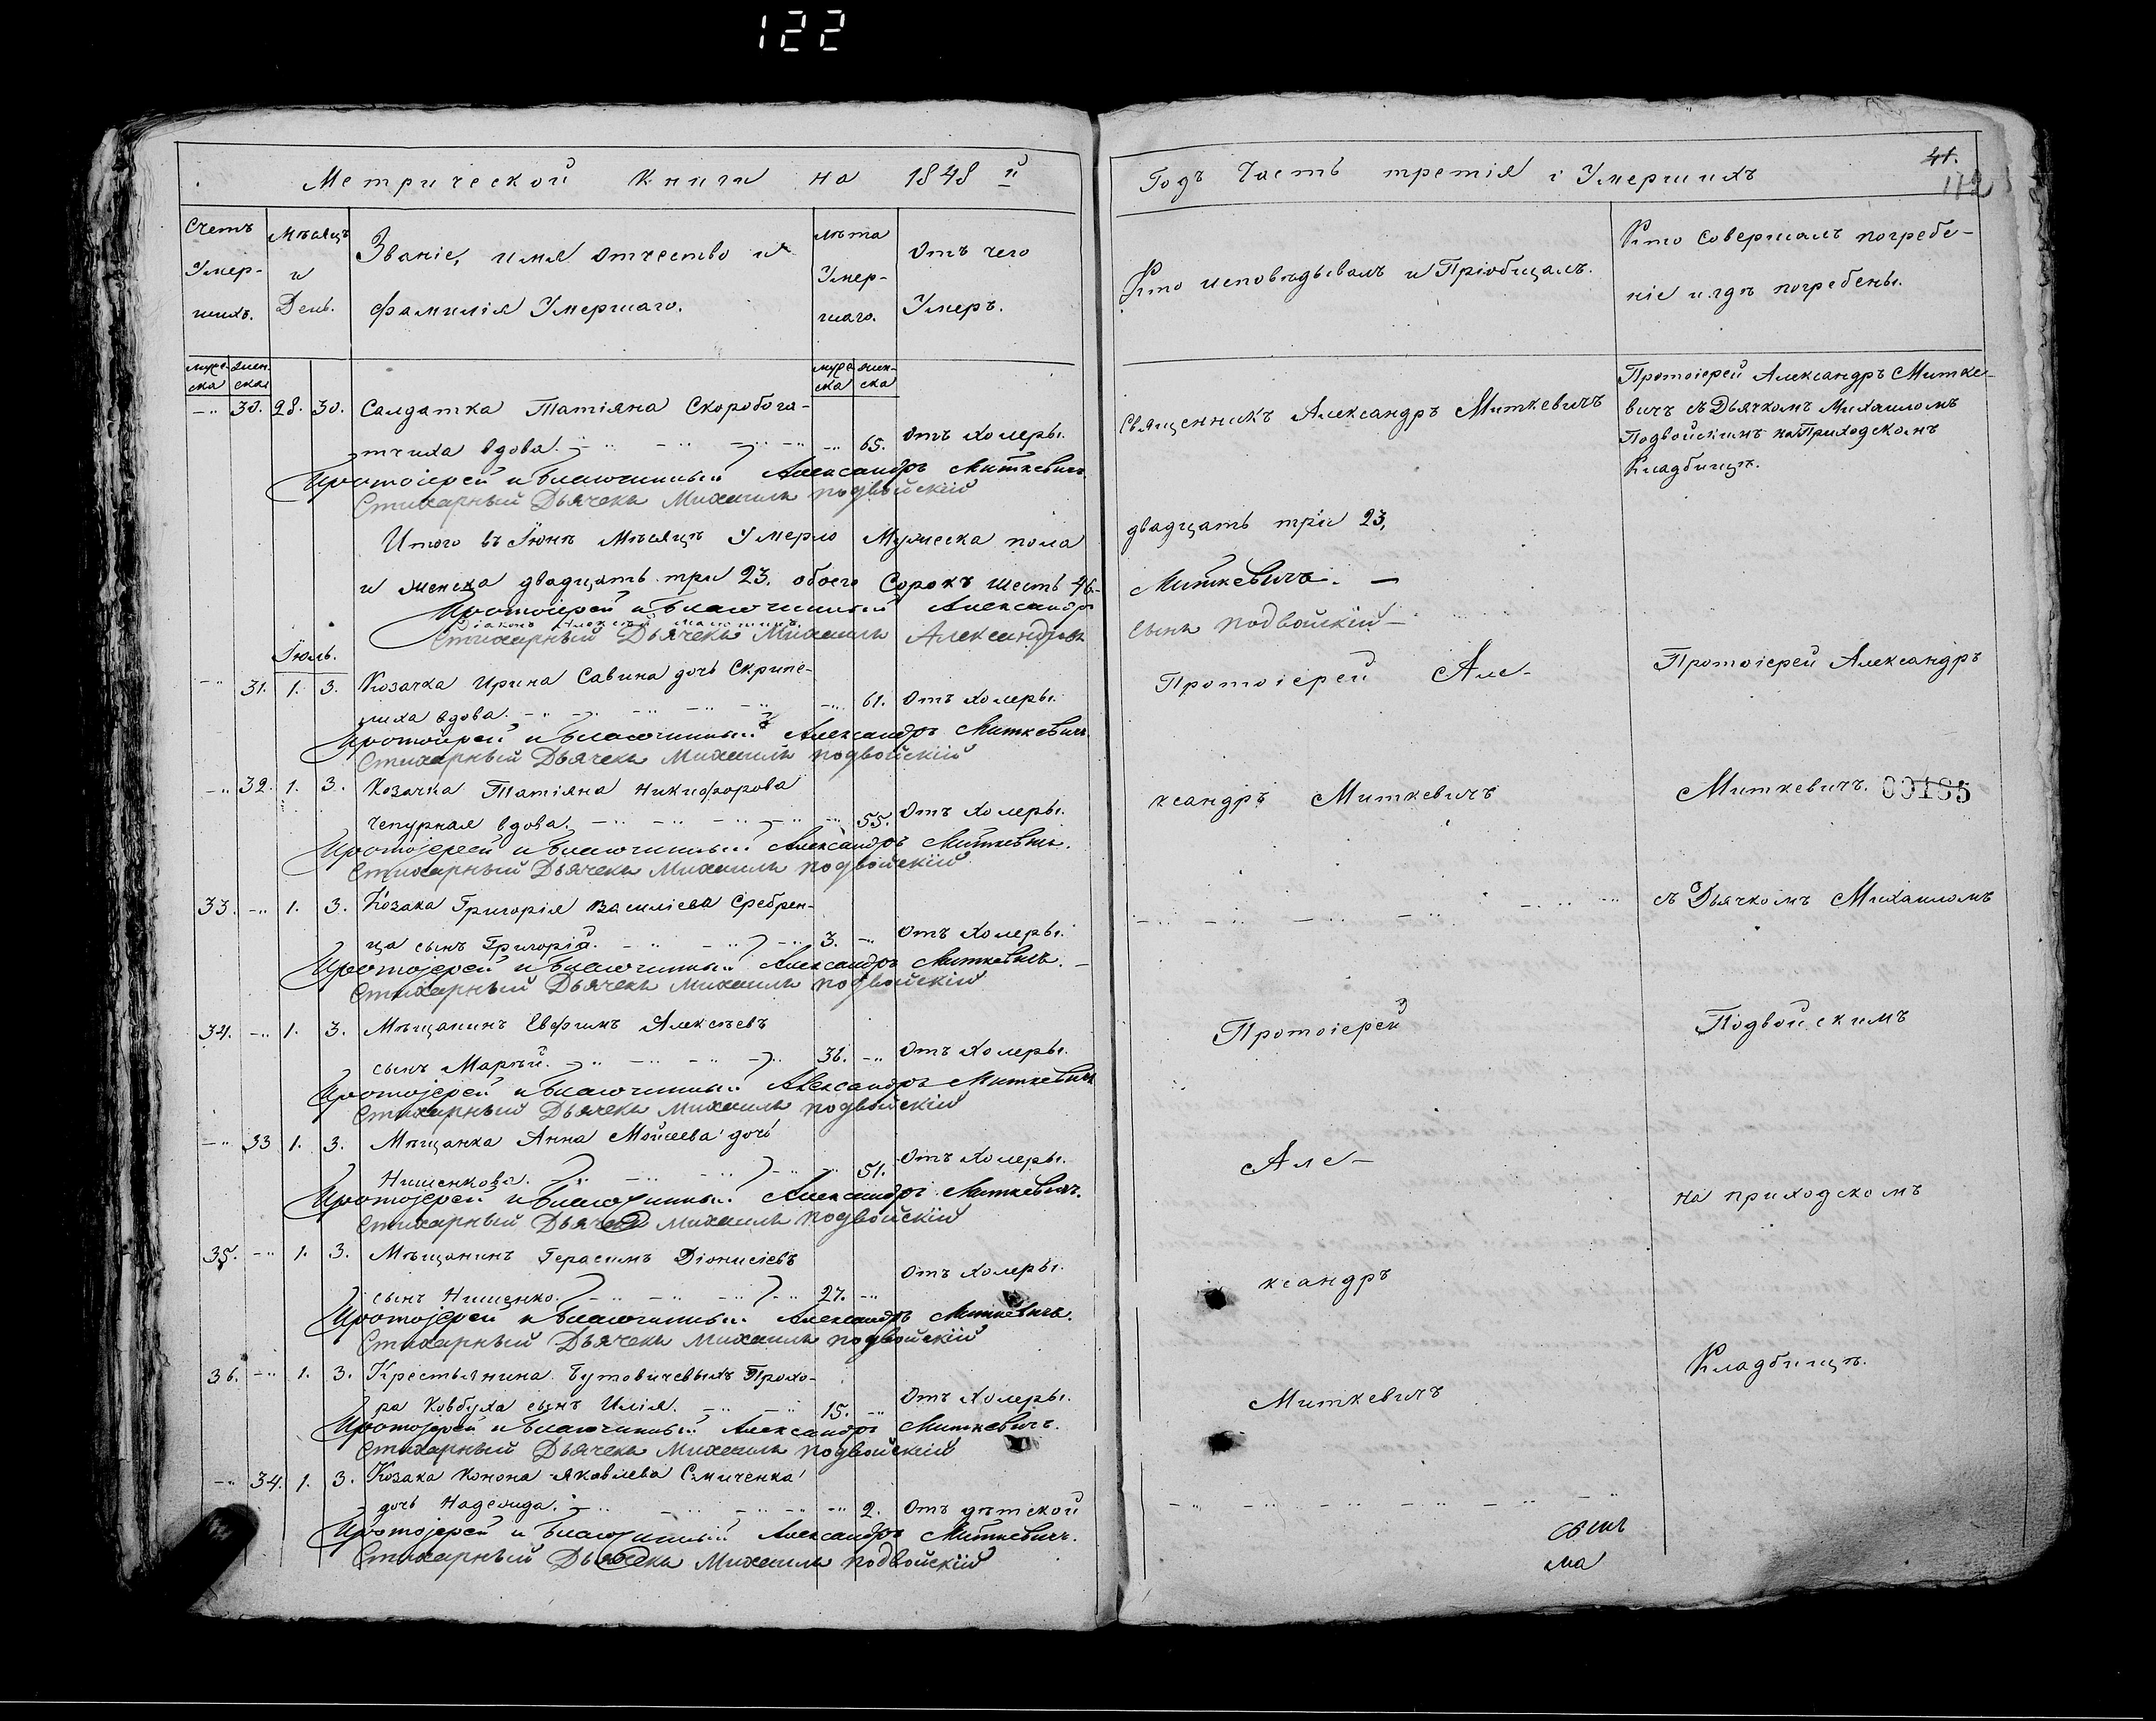 122
Метрической Книги на 1848 й
Счетъ Умер- шихъ.
Мѣсяцъ и День.
Званіе, имя отчество и фамилія Умершаго.
лѣта Умер- шаго.
Отъ чего Умеръ.
мужс- ска женс- ска
мужс- ска женс- ска
-״ 30. 28. 30. Салдатка Татіяна Скоробога-
тчиха вдова. -״ 65. Отъ Холеры.
Протоіерей и Благочинный Александръ Миткевичъ.
Стихарный Дьячекъ Михаилъ Подвойскій
Итого въ Іюнѣ Мѣсяцѣ Умерло Мужеска пола
и женска двадцать три 23. обоего Сорокъ шесть 46-
Протоіерей и Благочинный Александръ
Стихарный Дьячекъ Михаилъ Александровъ
Іюль.
-״ 31. 1. 3. Козачка Ирина Савина дочь Скрипе-
лиха вдова. -״ 61. Отъ Холеры.
Протоіерей и Благочинный Александръ Миткевичъ
Стихарный Дьячекъ Михаилъ Подвойскій
-״ 32. 1. 3. Козачка Татіяна Никифорова
Чепурная вдова. -״ 55. Отъ Холеры.
Протоіерей и Благочинный Александръ Миткевичъ.
Стихарный Дьячекъ Михаилъ Подвойскій
33. -״ 1. 3. Козака Григорія Василіева Сребрен-
ца сынъ Григорій. 3. -״ Отъ Холеры.
Протоіерей и Благочинный Александръ Миткевичъ.
Стихарный Дьячекъ Михаилъ Подвойскій
34. -״ 1. 3. Мѣщанинъ Евфимъ Алексѣевъ
сынъ Марѣй. 36. -״ Отъ Холеры.
Протоіерей и Благочинный Александръ Миткевичъ
Стихарный Дьячекъ Михаилъ Подвойскій
-״ 33 1. 3. Мѣщанка Анна Мойсеева дочь
Нишенкова. 51. Отъ Холеры.
Протоіерей и Благочинный Александръ Миткевичъ.
Стихарный Дьячекъ Михаилъ Подвойскій
35. -״ 1. 3. Мѣщанинъ Герасимъ Діонисіевъ
сынъ Нишенко. 27. -״ Отъ Холеры.
Протоіерей и Благочинный Александръ Миткевичъ.
Стихарный Дьячекъ Михаилъ Подвойскій
36. -״ 1. 3. Крестьянина Бутовичевыхъ Прохо-
ра Ковбуха сынъ Илія. 15. -״ Отъ Холеры.
Протоіерей и Благочинный Александръ Миткевичъ.
Стихарный Дьячекъ Михаилъ Подвойскій
-״ 34. 1. 3. Козака Конона Яковлева Смиченка
дочь Надежда. -״ 2. Отъ дѣтской
Протоіерей и Благочинный Александръ Миткевичъ.
Стихарный Дьячекъ Михаилъ Подвойскій
Годъ Часть третія о Умершихъ
41.
112
Кто исповѣдывалъ и Пріобщалъ.
Кто совершалъ погребе-
ніе и гдѣ погребены.
Священникъ Александръ Миткевичъ
Протоіерей Александръ Митке-
вичъ съ Дьячкомъ Михаиломъ
Подвойскимъ на Приходскомъ
Кладбищѣ.
двадцать три 23,
Миткевичъ. -
сынъ Подвойскій-
Протоіерей Але-
Протоіерей Александръ
ксандръ Миткевичъ
Миткевичъ. 00185
съ Дьячкомъ Михаиломъ
Протоіерей
Подвойскимъ
Але-
на приходскомъ
ксандръ
Кладбищѣ.
Миткевичъ